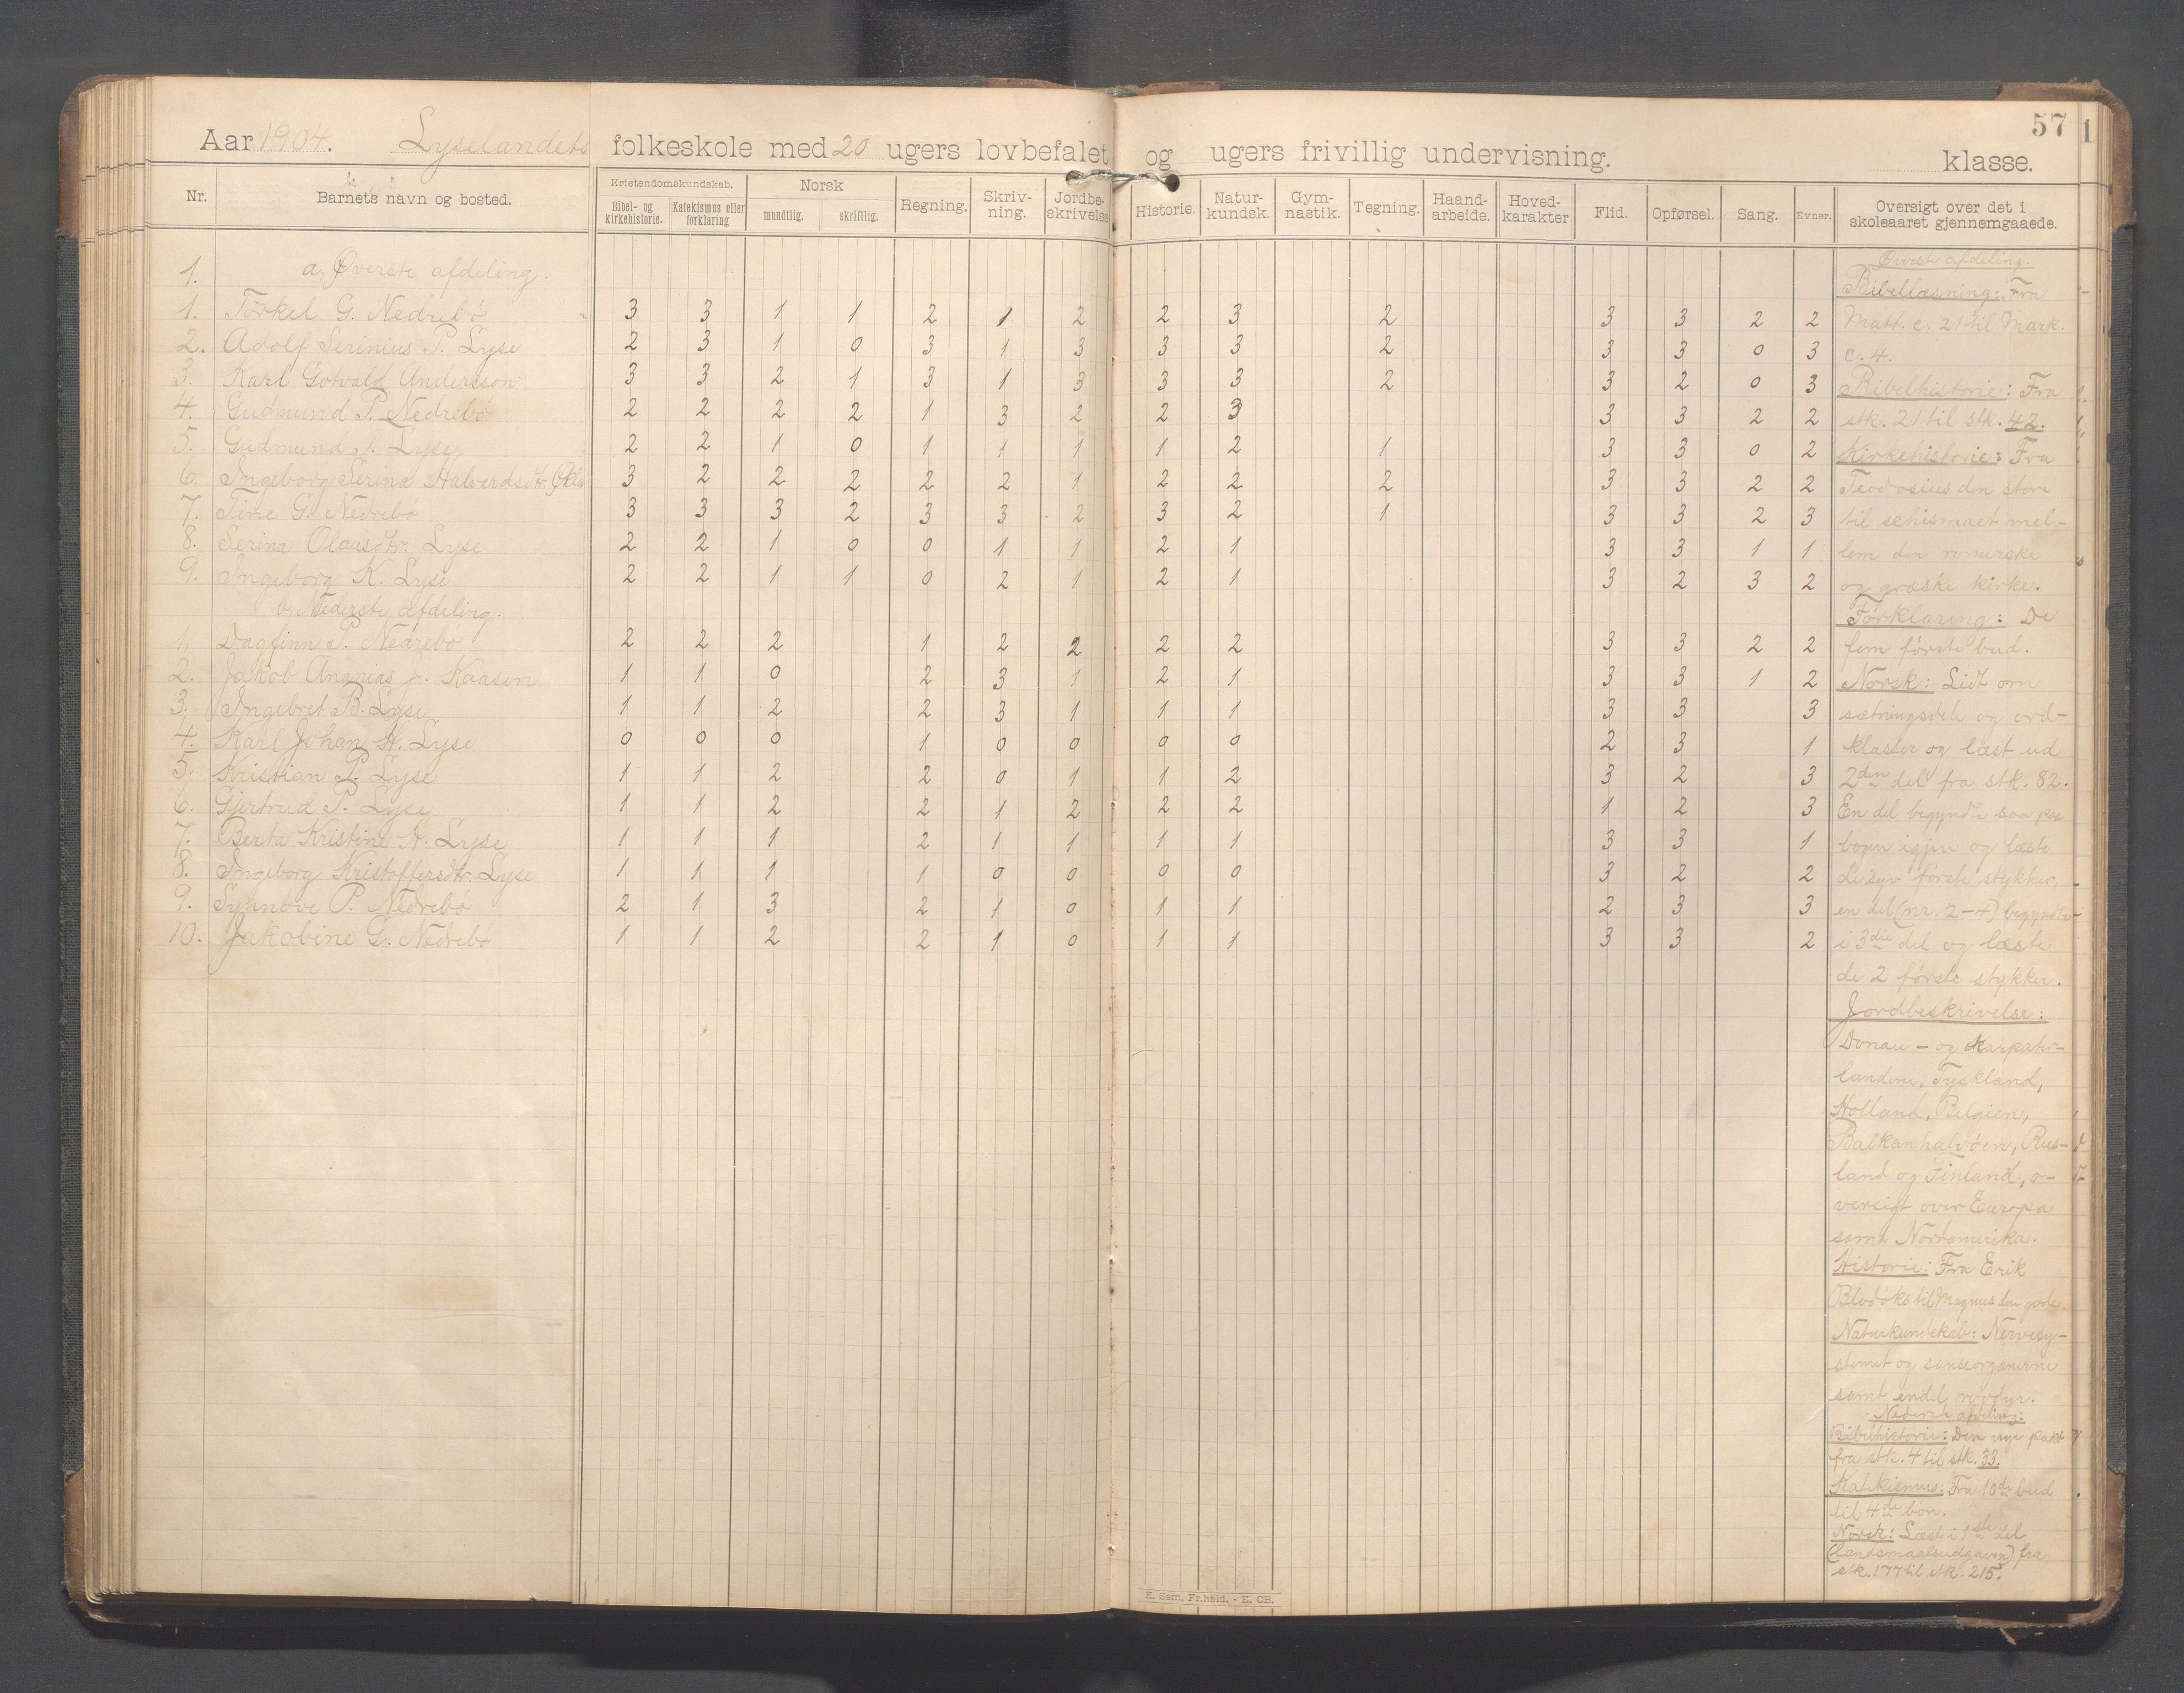 57
1
Aar 1904. Lyselandets folkeskole med 20 ugers lovbefalet og ugers frivillig undervisning. klasse.
Nr. Barnets navn og bosted. Kristendomskundskab. Norsk Regning. Skrivning. Jordbeskrivelse Historie. Naturkundsk. Gymnastik. Tegning. Haandarbeide. Hovedkarakter Flid. Opførsel. Sang. Evner. Oversigt over det i skoleaaret gjennemgaaede.
Bibel- og kirkehistorie. Katekismus eller forklaring mundtlig. skriftlig.
1. a, Øverste afdeling.
1. Torkel G. Nedrebø 3 3 1 1 2 1 2 2 3 2 3 3 2 2
2. Adolf Serinius P. Lyse 2 3 1 0 3 1 3 3 3 2 3 3 0 3
3. Karl Gotvald Andersson 3 3 2 1 3 1 3 3 3 2 3 2 0 3
4. Gudmund P. Nedrebø 2 2 2 2 1 3 2 2 3 3 3 2 2
5. Gudmund T. Lyse 2 2 1 0 1 1 1 1 2 1 3 3 0 2
6. Ingeborg Serina Halvardsdtr. 3 2 2 2 2 2 1 2 2 2 3 3 2 2
7. Tine G. Nedrebø 3 3 3 2 3 3 2 3 2 1 3 3 2 3
8. Serina Olausdtr. Lyse 2 2 1 0 0 1 1 2 1 3 3 1 1
9. Ingeborg K. Lyse 2 2 1 1 0 2 1 2 1 3 2 3 2
b. Nederste afdeling.
1. Dagfinn P. Nedrebø 2 2 2 1 2 2 2 2 3 3 2 2
2. Jakob Ananias J. Kaasen 1 1 0 2 3 1 2 1 3 3 1 2
3. Ingebret B. Lyse 1 1 2 2 3 1 1 1 3 3 3
4. Karl Johan H. Lyse 0 0 0 1 0 0 0 0 2 3 1
5. Kristian P. Lyse 1 1 2 2 0 1 1 2 3 2 3
6. Gjertrud P. Lyse 1 1 2 2 1 2 2 2 1 2 3
7. Berta Kristine H. Lyse 1 1 1 2 1 1 1 1 3 3 1
8. Ingeborg Kristoffersdtr. Lyse 1 1 1 1 0 0 0 0 3 2 2
9. Synnøve P. Nedrebø 2 1 3 2 1 0 1 1 2 3 3
10. Jakobine G. Nedrebø 1 1 2 2 1 0 1 1 3 3 2
Øverste afdeling.
Bibellæsning: Fra
Matt. c. 21 til Mark.
c. 4.
Bibelhistorie: Fra
stk. 21 til stk. 42.
Kirkehistorie: Fra
Teodosius den store
til schismaet mel-
lem den romerske
og græske kirke.
Forklaring: De
fem første bud.
Norsk: Lidt om
sætningsdele og ord-
klasser og læst ud
2den del fra stk. 82.
En del begyndte saa paa
bogen igjen og læste
de syv første stykker,
en del (nr. 2-4) begyndte
i 3die del og læste
de 2 første stykker.
Jordbeskrivelse:
Donau- og Karpater-
landene, Tyskland,
Holland, Belgien,
Balkanhalvøen, Rus-
land og Finland, o-
versigt over Europa
samt Nordamerika.
Historie: Fra Erik
Blodøks til Magnus den gode.
Naturkundskab: Nervesy-
stemet og sanseorganerne
samt endel rovdyr.
Nederste afdeling:
Bibelhistorie: Den nye pakt
fra stk. 4 til stk. 33.
Katekismus: Fra 10de bud
til 4de bøn.
Norsk: Læst i 1ste del
(landsmaalsudgaven) fra
stk. 177 til stk. 215.
E. Sem, Fr.hald. - E. CB.